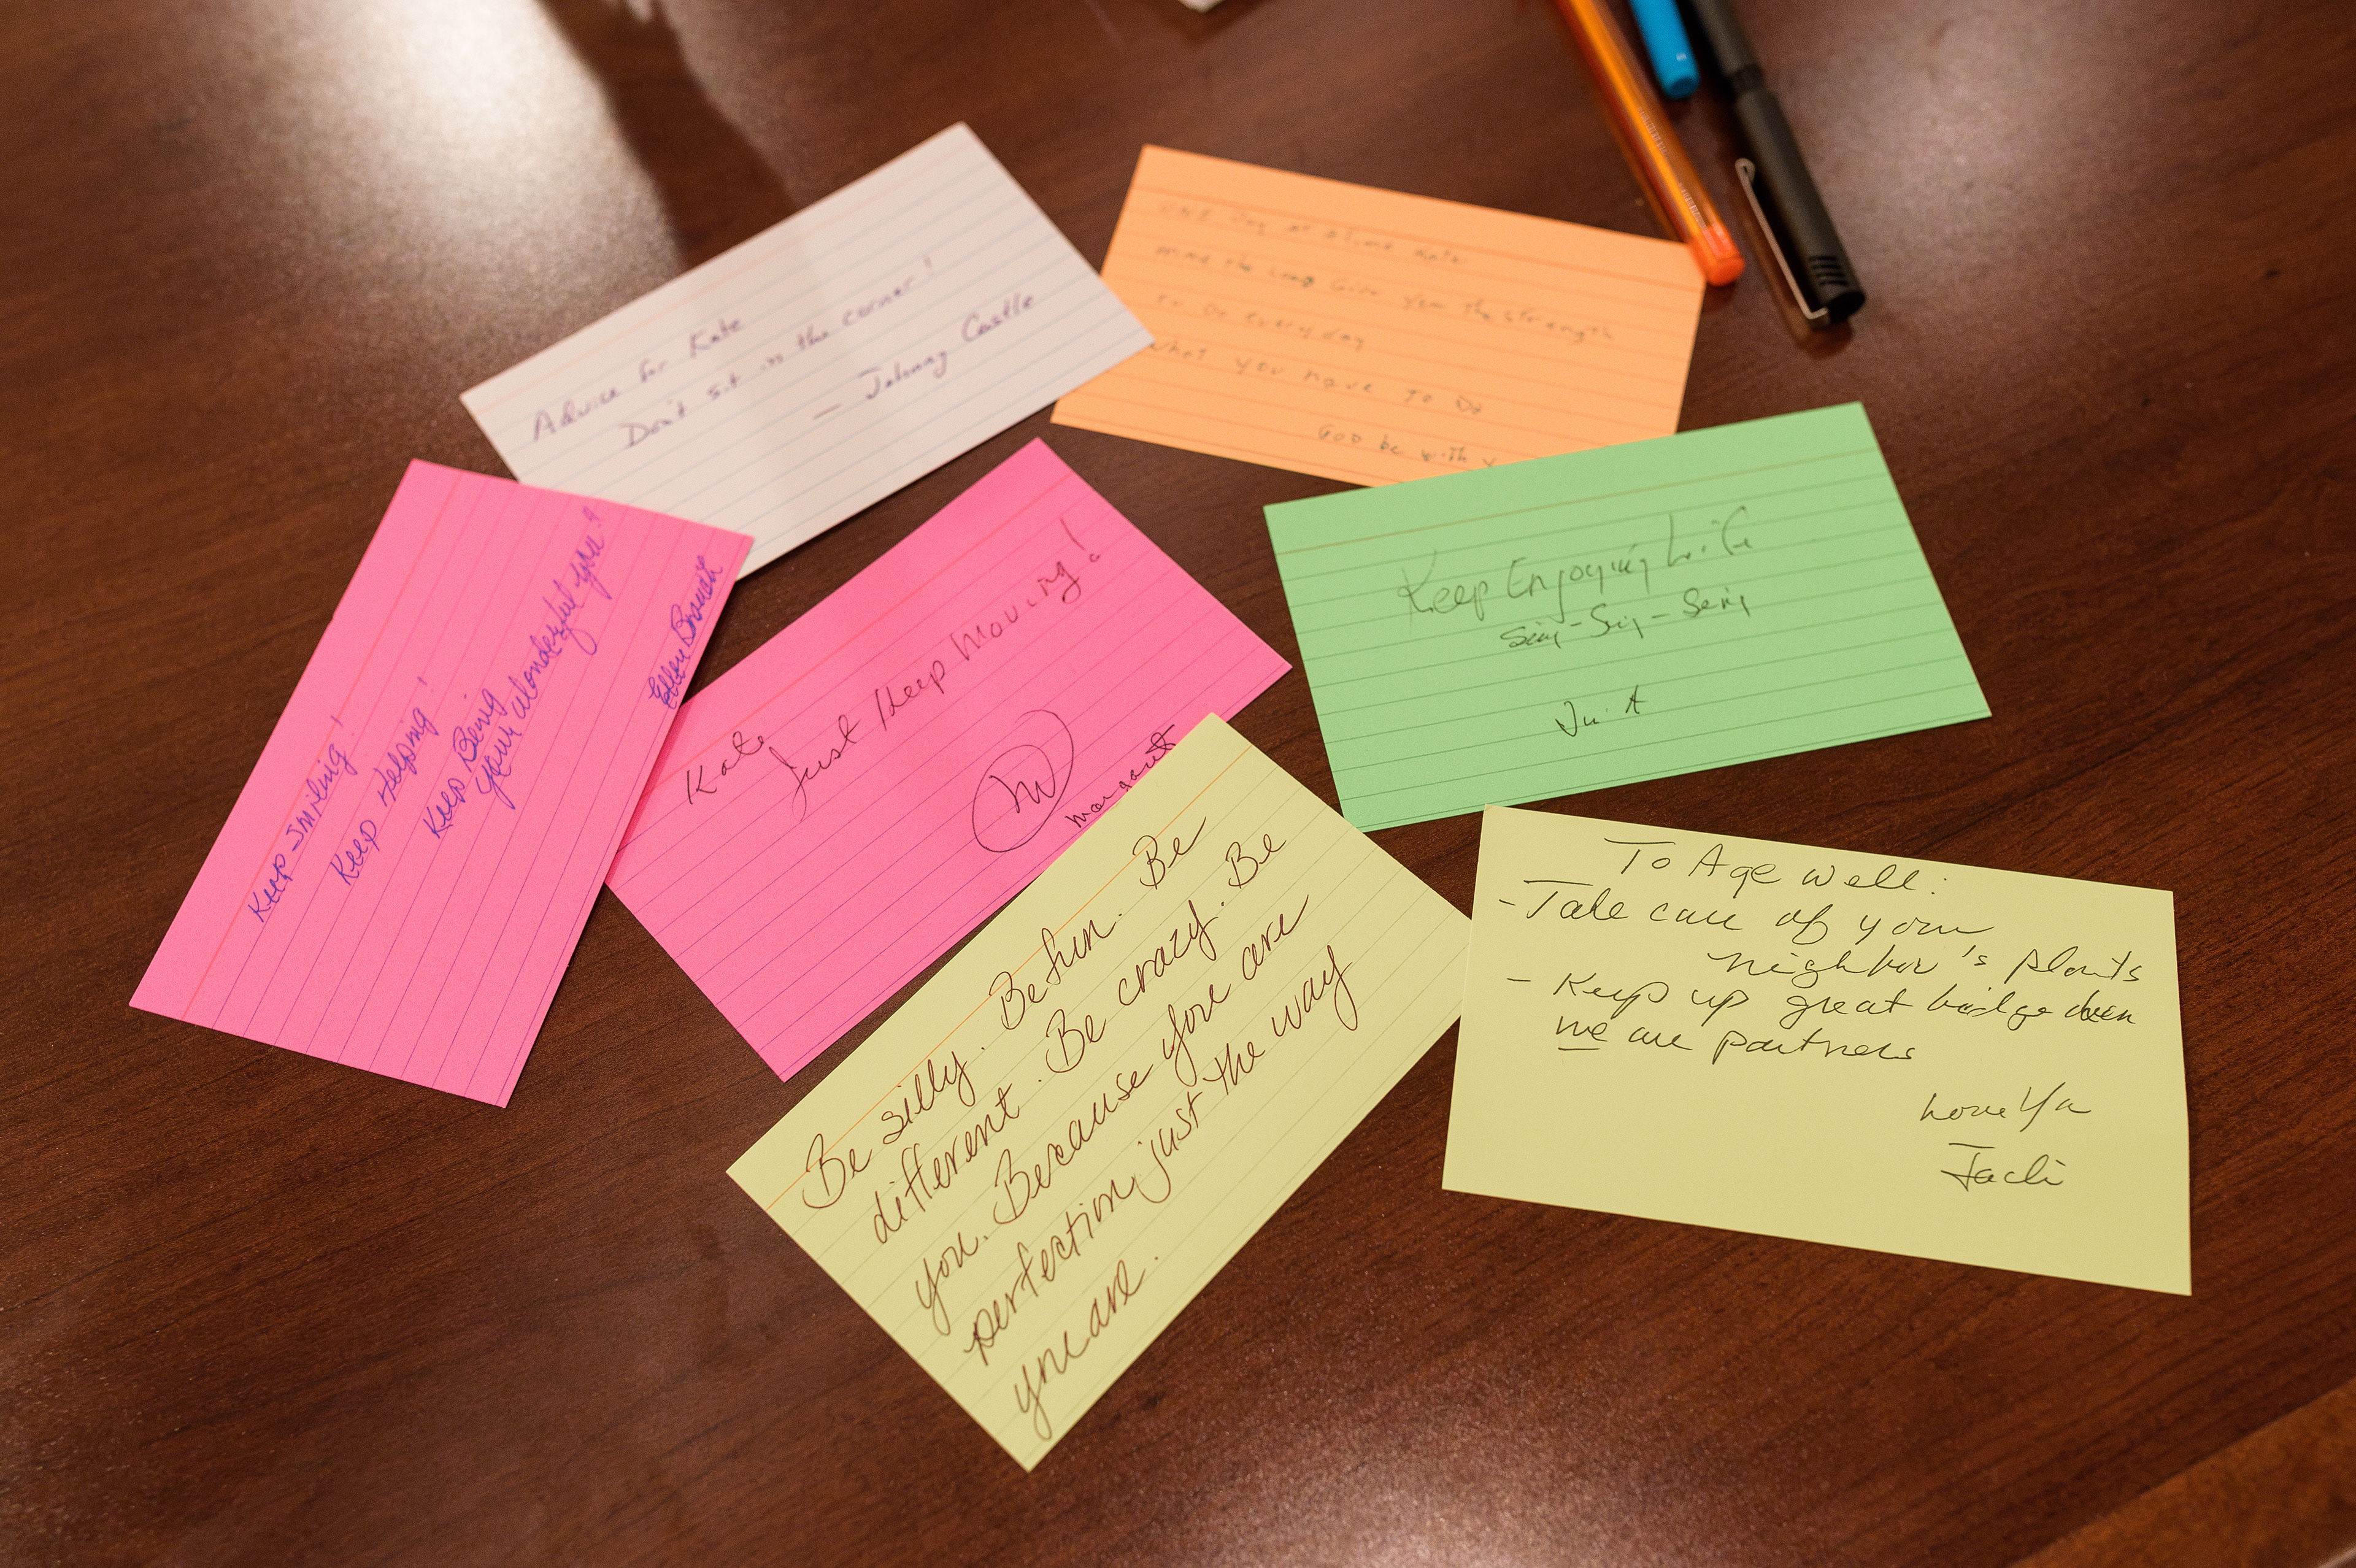 Advice for Kate
Don't sit in the corner!
— Johnny Castle
ONE Day at a Time Kate
may the Give you the strength
to do everyday
what you have To Do
GOD be with
Keep Smiling!
Keep Helping!
Keep Being
your wonderful you!
Ellen
Kate,
Just Keep Moving!
Margaret
Keep Enjoying Life
Sing - Sing - Sing
Be silly. Be fun. Be
different. Be crazy. Be
you. Because you are
perfection, just the way
you are.
To Age Well:
- Take care of your
neighbor's plants
- Keep up great bridge when
we are partners
Love Ya
Jacki